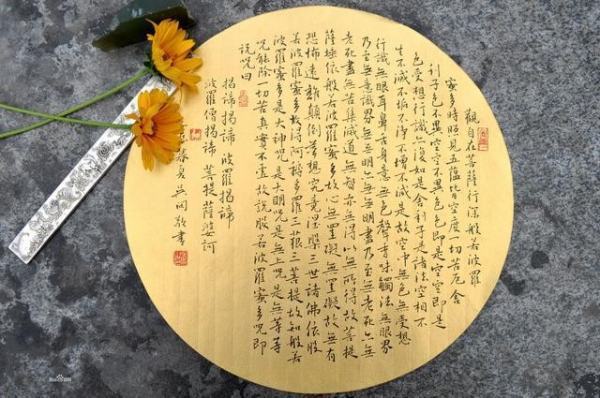 觀自在菩薩行深般若波羅
蜜多時照見五蘊皆空度一切苦厄舍
利子色不異空空不異色色即是空空即是
色受想行識亦復如是舍利子是諸法空相不
生不滅不垢不淨不增不減是故空中無色無受想
行識無眼耳鼻舌身意無色聲香味觸法無眼界
乃至無意識界無無明亦無無明盡乃至無老死亦無
老死盡無苦集滅道無智亦無得以無所得故菩提
薩埵依般若波羅蜜多故心無罣礙無罣礙故無有
恐怖遠離顛倒夢想究竟涅槃三世諸佛依般
若波羅蜜多故得阿耨多羅三藐三菩提故知般若
波羅蜜多是大神咒是大明咒是無上咒是無等等
咒能除一切苦真實不虛故說般若波羅蜜多咒即
說咒曰
揭諦揭諦 波羅揭諦
波羅僧揭諦 菩提薩婆訶
春夏 敬書